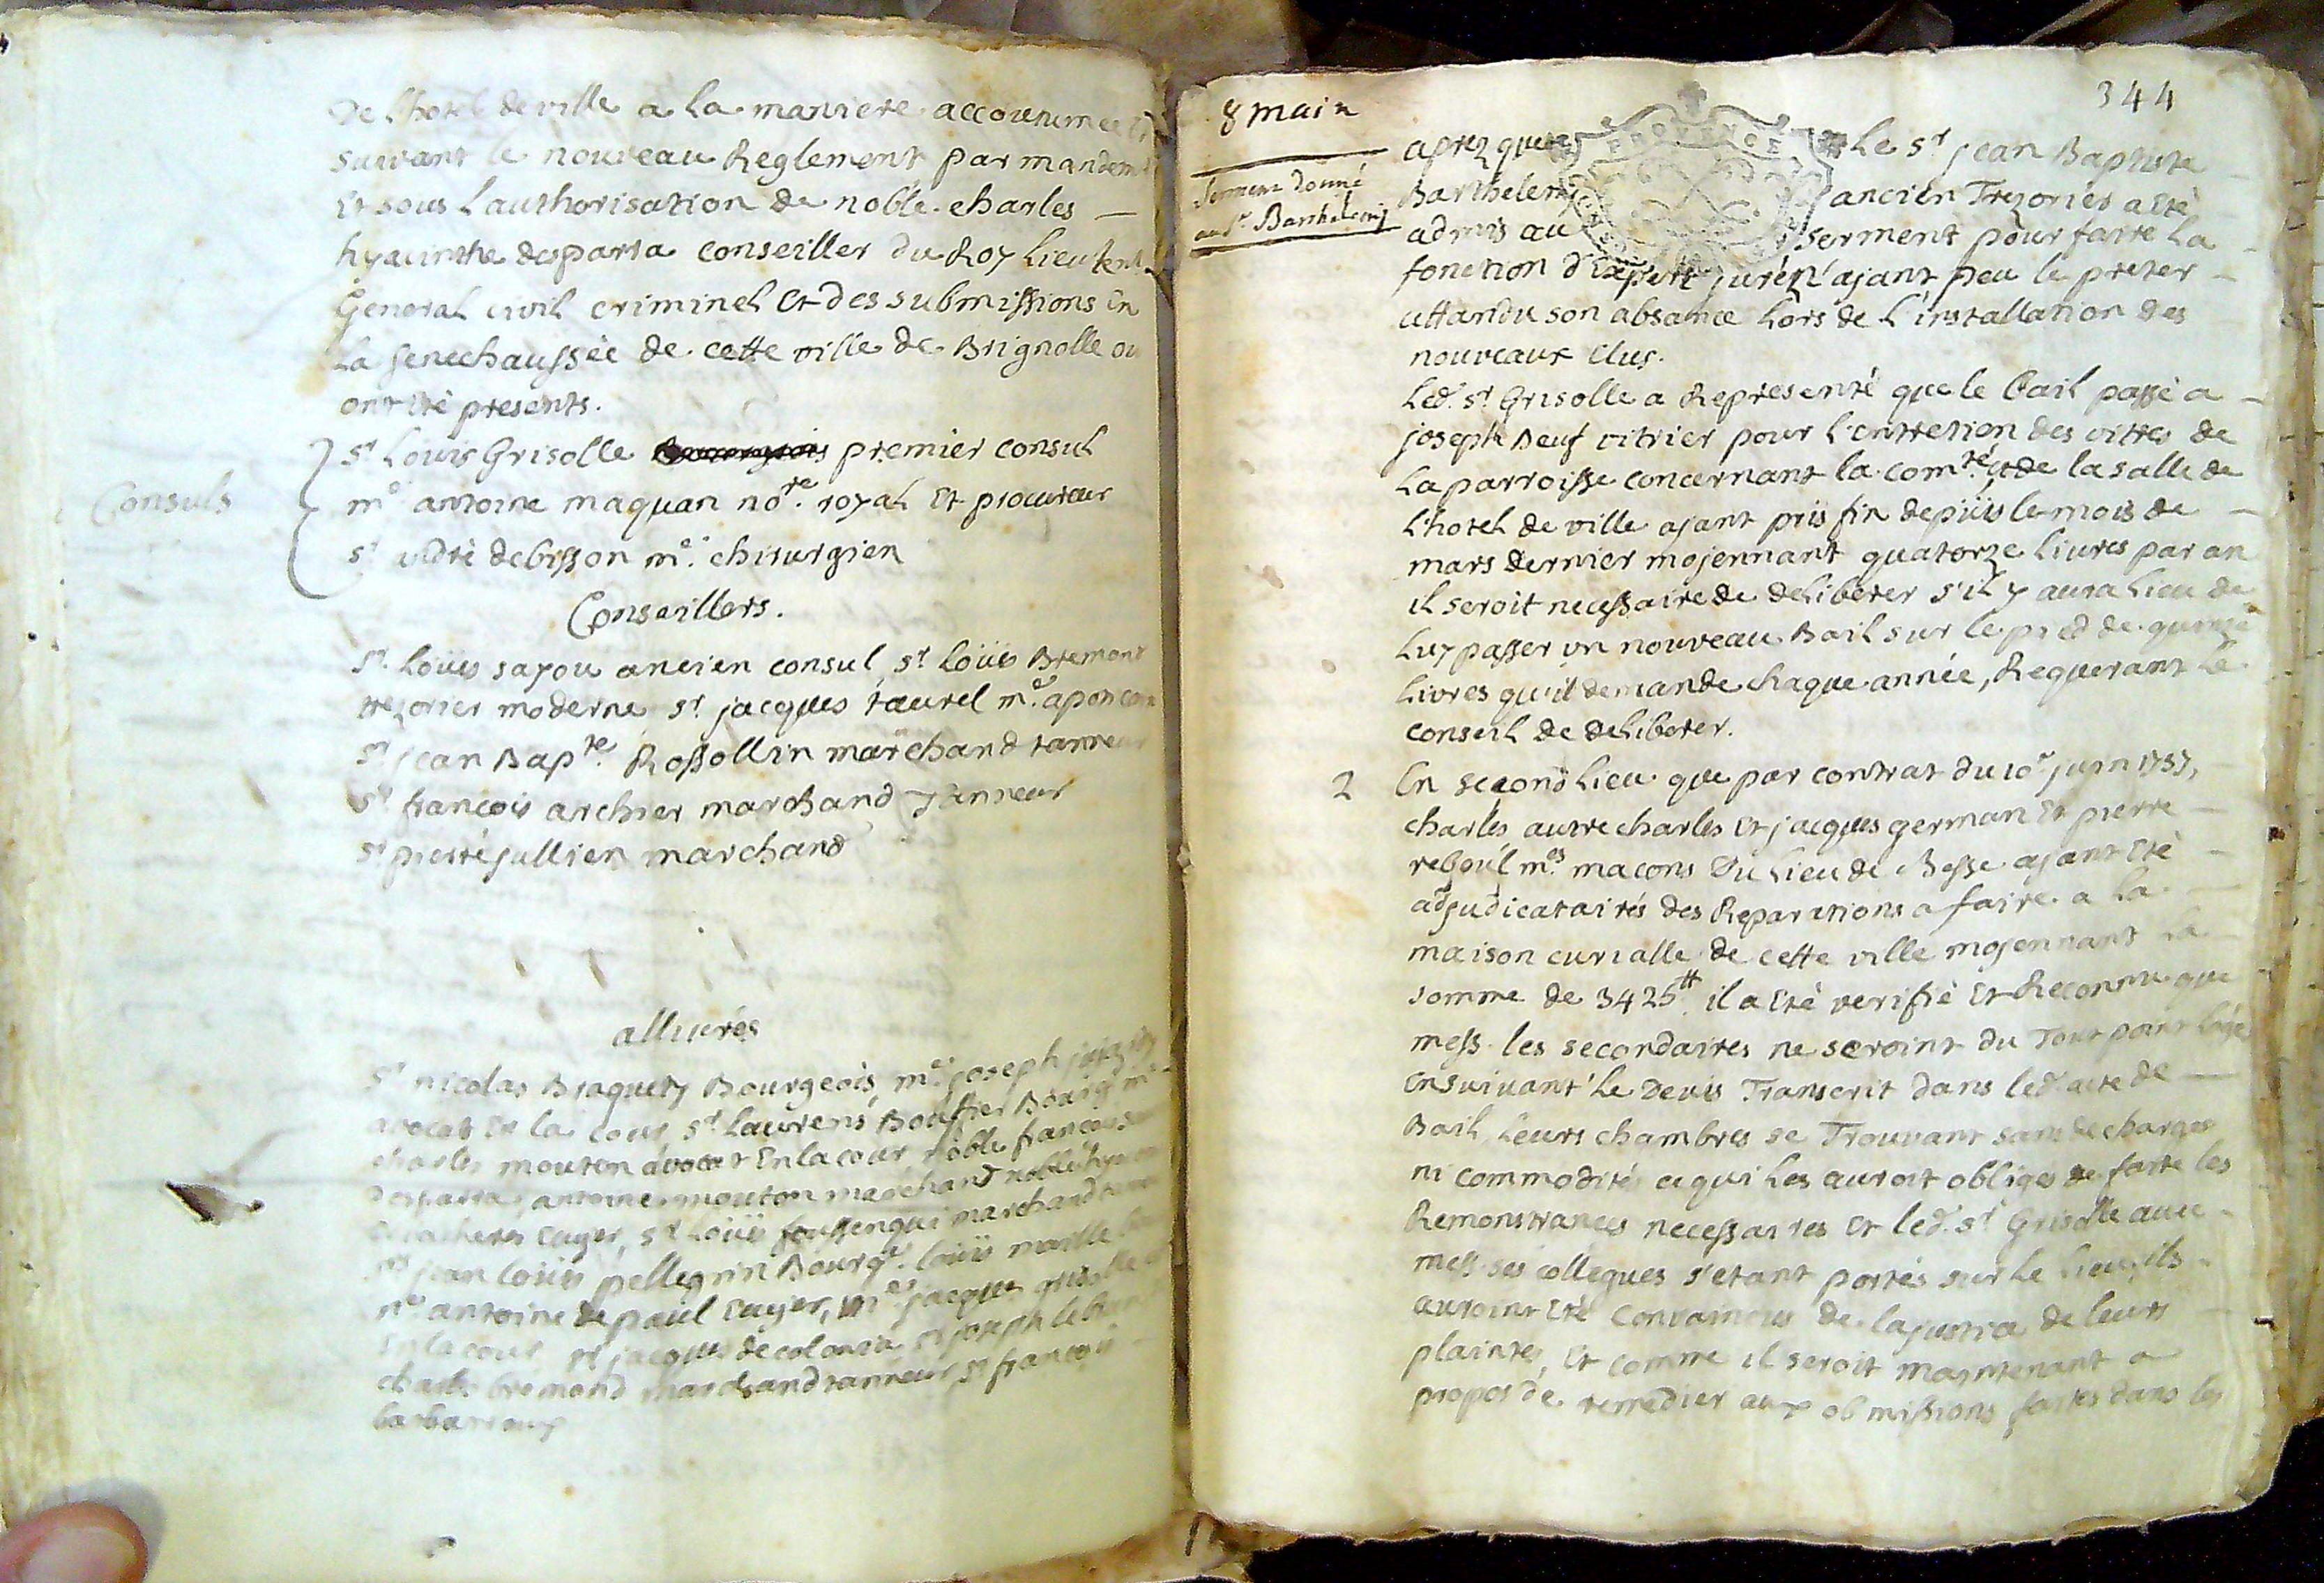 De l'hotel de ville a la maniere accoutumée Et
suivant le nouveau Reglement par mandemt
Et sous l'authorisation de noble charles
hyacinthe desparra conseiller du Roy Lieutent
General civil criminel Et des submissions En
la senechaussée de cette ville de Brignolle ou
ont Eté presents.
Consuls
Sr Louis Grisolle premier consul
me antoine maquan nore royal Et procureur
sr debisson me chirurgien
Conseillers.
Sr Loüis sayou ancien consul, sr Loüis Bremont
trezorier moderne sr jacques taurel me
sr jean Bapte Rossollin marchand tanneur
sr francois archier marchand Tanneur
sr pierre jullien marchand
allivrés
Sr nicolas Braquety Bourgeois, me joseph
avocat En la cour, sr Laurens Bouffier Bourgs me
charles mouton avocat En la cour noble francois
desparra, antoine mouton marchand noble
Cuyer, sr Loüis fossenqui marchand
sr jean loüis pellegrin Bourgs loüis maille
ne antoine de paul Cuyer, me jacques grisolle
En la cour sr jacques de colonia sr joseph lebrun
charles bremond marchand tanneur, sr francois
barbarroux
344
8 main
Serment donné
au sr Barthelemy
PROVENCE
aprez que Le sr jean Baptiste
Barthelemy ancien Trezorier a Eté
admis au serment pour faire la
fonction d'Expert juré n'ajant peu le preter
attandu son absance Lors de l'installation des
nouveaux Elus.
Led. sr Grisolle a Representé que le bail passé a
joseph Beuf vitrier pour l'entretion des vitres de
La parroisse concernant la comté et de la salle de
L'hotel de ville ajant pris fin depuis le mois de
mars dernier mojennant quatorze livres par an
il seroit necessaire de deliberer s'il y aura lieu de
luy passer un nouveau Bail sur le pied de quinze
Livres qu'il demande chaque année, Requerant Le
conseil de deliberer.
2 En second Lieu que par contrat du 10e juin 1757,
charles autre charles Et jacques german Et pierre
reboul mes macons Du Lieu de Besse ajant Eté
adjudicataires des Reparations a faire a la
maison curialle de cette ville mojennant la
somme de 3425tt il a Eté verifié Et Reconnu que
mess. les secondaires ne seroint du Tout point logés
En suivant Le Devis Transcrit dans led. acte de
Bail, Leurs chambres se Trouvant sans decharges
ni commodités ce qui les auroit obligés de faire les
Remonstrances necessaires Et led. sr Grisolle avec
mess. ses collegues s'etant portés sur le lieu, ils
auroint Eté convaincus de la justice de leurs
plaintes, Et comme il seroit maintenant a
propos de remedier aux obmissions faites dans les